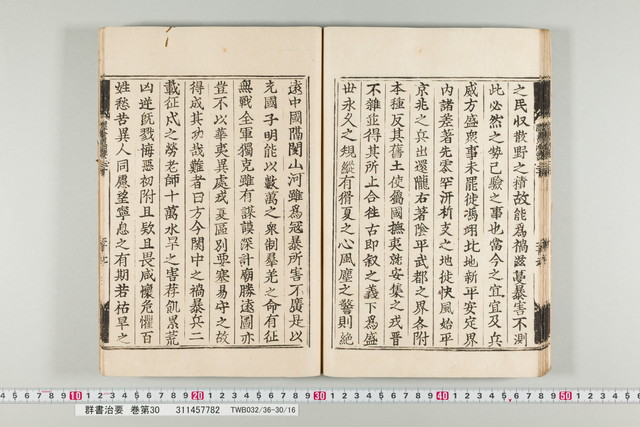 之民収散野之積故能為禍滋蔓暴害不測
此必然之勢已驗之事也當今之宜宜及兵
威方盛衆事未罷徙馮翊北地新平安定界
內諸羌著先零罕汧析支之地徙扶風始平
京兆之兵出還隴右著陰平武都之界各附
本種反其舊土使屬國撫夷就安集之戎晉
不雜並得其所上合往古即叙之義下爲盛
世永久之規縱有猾夏之心風塵之警則絶
遠中國隔閡山河雖爲冦暴所害不廣是以
充國子明能以數萬之衆制羣羌之命有征
無戰全軍獨克雖有謀謨深計廟勝遠圖亦
豈不以華夷異處戎夏區別要塞易守之故
得成其功哉難者曰方今関中之禍暴兵二
載征戍之勞老師十萬水旱之害荐飢累荒
凶逆既戮悔惡初附且欵且畏咸懷危懼百
姓愁苦異人同慮望寧息之有期若枯旱之
10 20 30 40 50 60
群書治要 巻第30 311457782 TWB032/36-30/16